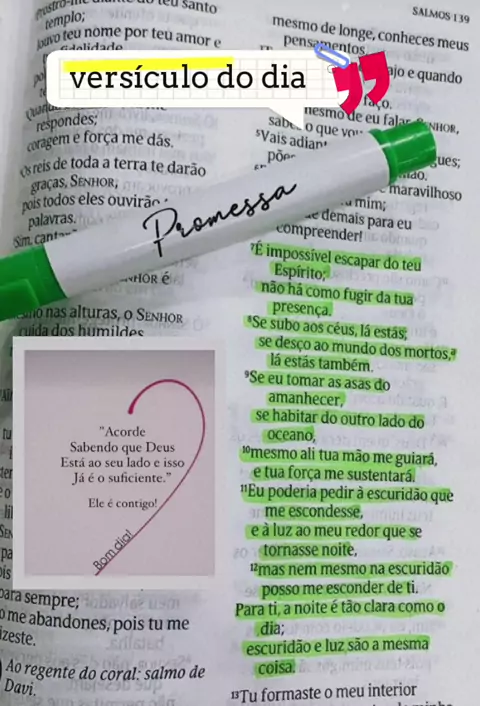 SALMOS 139
versículo do dia
Promessa
templo;
louvo teu nome por teu amor e
fidelidade
respondes;
coragem e força me dás.
Os reis de toda a terra te darão
graças, SENHOR;
pois todos eles ouvirão
palavras.
nas alturas, o SENHOR
cuida dos humildes
"Acorde
Sabendo que Deus
Está ao seu lado e isso
Já é o suficiente."
Ele é contigo!
Bom dia!
para sempre;
me abandones, pois tu me
Ao regente do coral: salmo de
Davi.
mesmo de longe, conheces meus
pensamentos.
e quando
faço.
mesmo de eu falar, SENHOR,
o que vou
⁵Vais adian
maravilhoso
mim;
demais para eu
compreender!
⁷É impossível escapar do teu
Espírito;
não há como fugir da tua
presença.
⁸Se subo aos céus, lá estás;
se desço ao mundo dos mortos,ᵃ
lá estás também.
⁹Se eu tomar as asas do
amanhecer,
se habitar do outro lado do
oceano,
¹⁰mesmo ali tua mão me guiará,
e tua força me sustentará.
¹¹Eu poderia pedir à escuridão que
me escondesse,
e à luz ao meu redor que se
tornasse noite,
¹²mas nem mesmo na escuridão
posso me esconder de ti.
Para ti, a noite é tão clara como o
dia;
escuridão e luz são a mesma
coisa.
¹³Tu formaste o meu interior